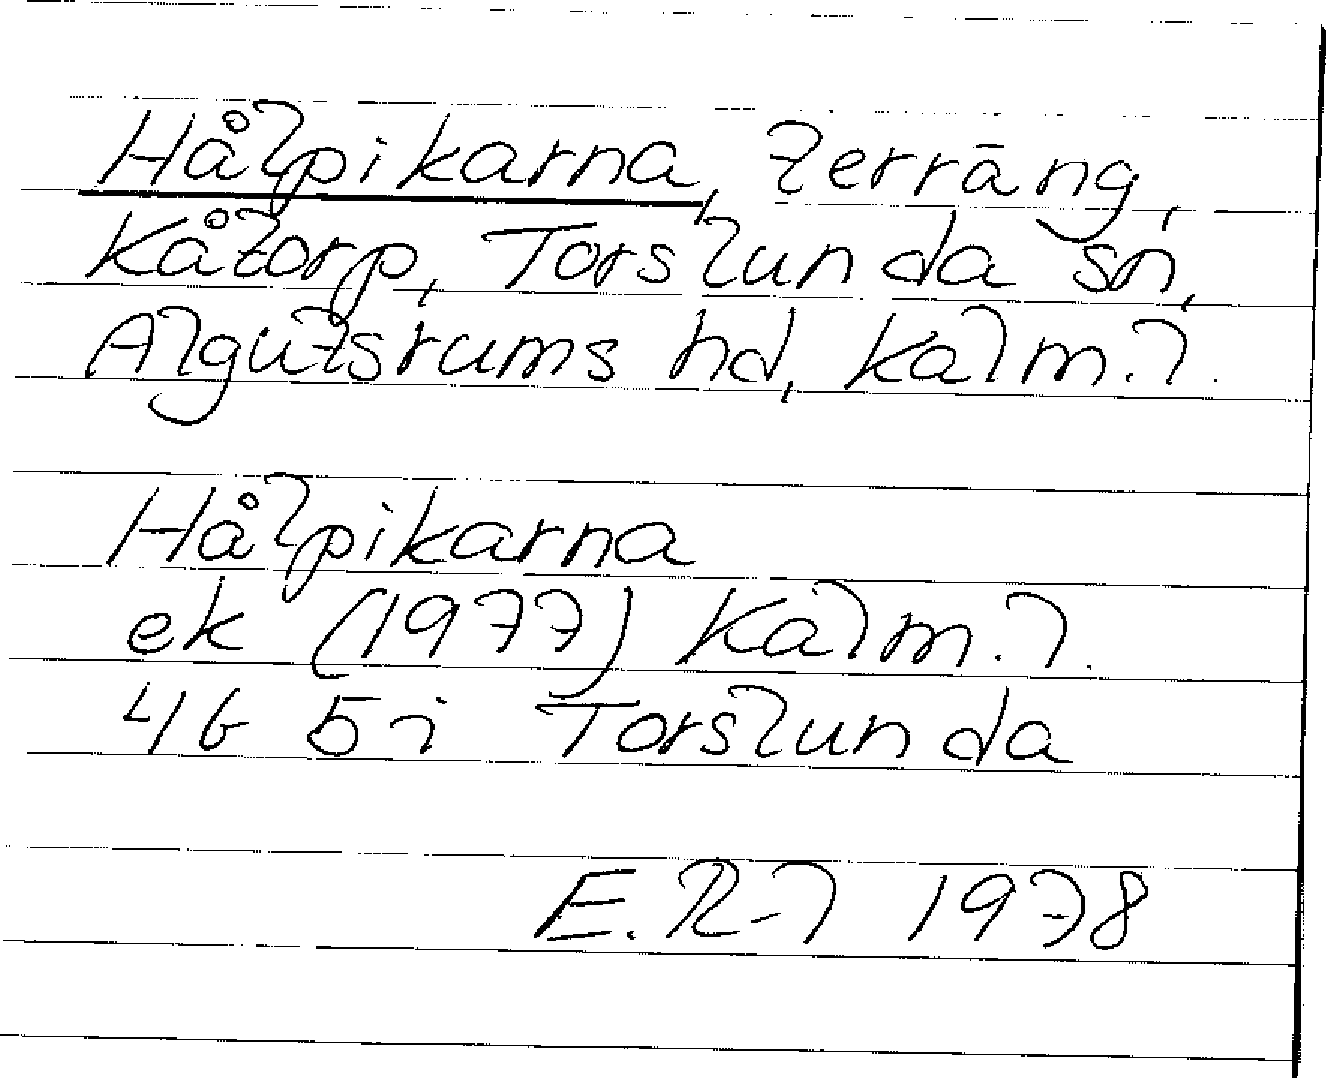 Hålpikarna, terräng,
Kåtorp, Torslunda sn,
Algutsrums hd, Kalm. l.
Hålpikarna
ek (1977) Kalm. l.
4G 5i Torslunda
E. R-l 1978